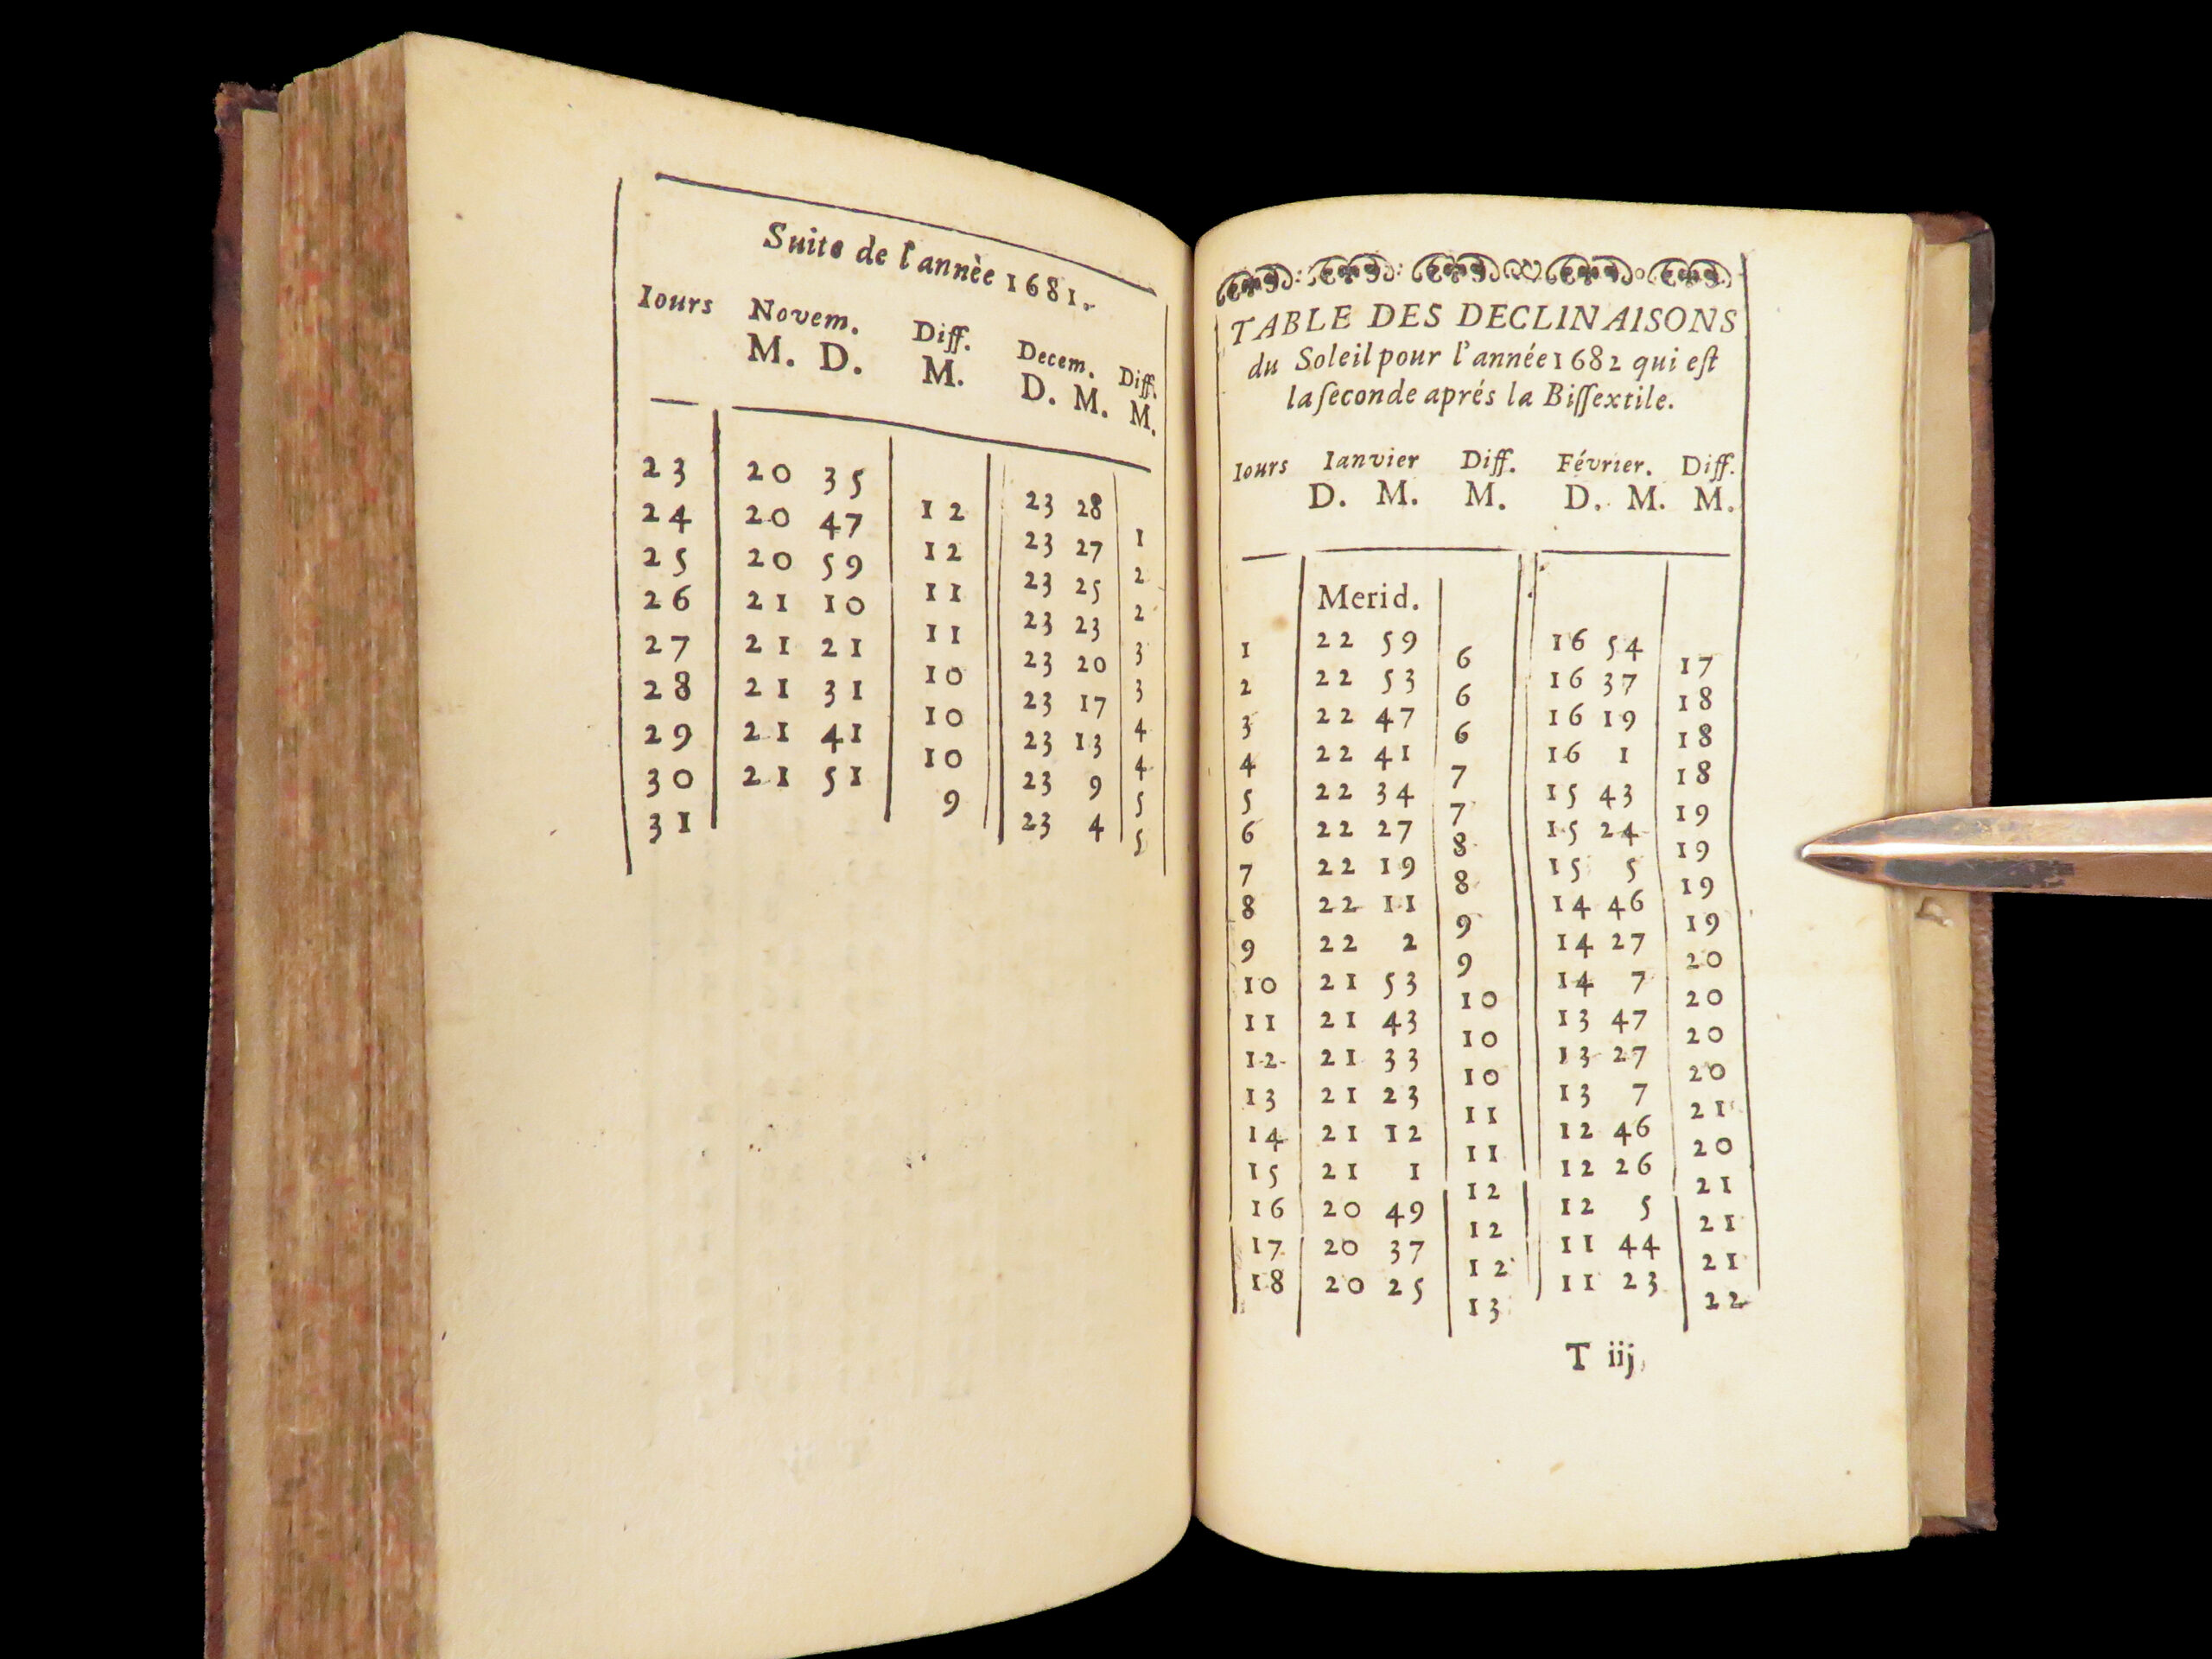 Suite de l'annèe 1681.
Iours Novem. Diff. Decem. Diff.
M. D. M. D. M. M.
23 20 35 23 28
24 20 47 12 23 27 1
25 20 59 12 23 25 2
26 21 10 11 23 23 2
27 21 21 11 23 20 3
28 21 31 10 23 17 3
29 21 41 10 23 13 4
30 21 51 10 23 9 4
31 9 23 4 5
5
TABLE DES DECLINAISONS
du Soleil pour l'année 1682 qui eſt
la ſeconde aprés la Biſſextile.
Iours Ianvier Diff. Février. Diff.
D. M. M. D. M. M.
Merid.
1 22 59 6 16 54 17
2 22 53 6 16 37 18
3 22 47 6 16 19 18
4 22 41 7 16 1 18
5 22 34 7 15 43 19
6 22 27 8 15 24 19
7 22 19 8 15 5 19
8 22 11 9 14 46 19
9 22 2 9 14 27 20
10 21 53 10 14 7 20
11 21 43 10 13 47 20
12 21 33 10 13 27 20
13 21 23 11 13 7 21
14 21 12 11 12 46 20
15 21 1 12 12 26 21
16 20 49 12 12 5 21
17 20 37 12 11 44 21
18 20 25 13 11 23 22
T iij